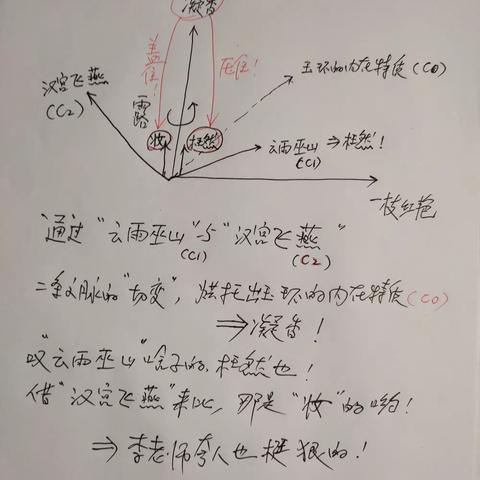 凝香
盖住！
压住！
汉宫飞燕
(C2)
露
玉环的内在特质(C0)
妆
枉然
云雨巫山⇒枉然！
(C1)
一枝红艳
通过“云雨巫山”与“汉宫飞燕”
(C1)
(C2)
二重文脉的“切变”，烘托出玉环的内在特质(C0)
⇒凝香！
叹“云雨巫山”啥子的，枉然也！
借“汉宫飞燕”来比，那是“妆”的哟！
⇒李老师夸人也挺狠的！